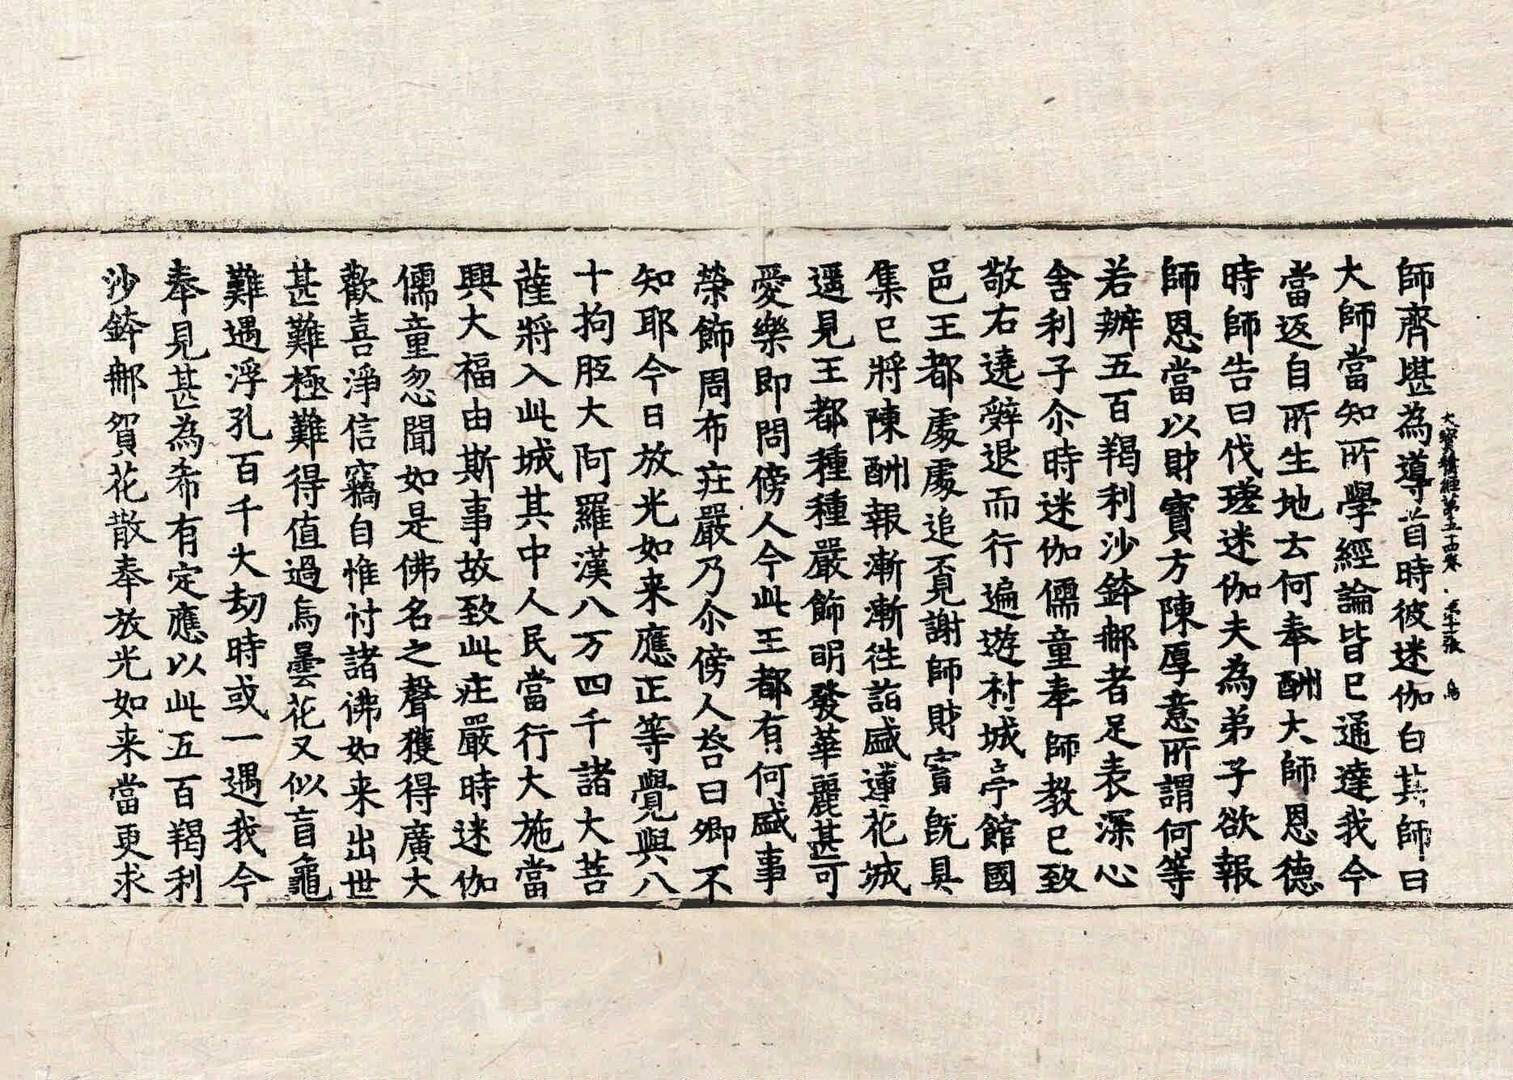 師齊堪為導首時彼迷伽白其師曰
大寶積經第五十四卷
大師當知所學經論皆已通達我今
當返自所生地去何奉酬大師恩德
時師告曰伐瑳迷伽夫為弟子欲報
師恩當以財寶方陳厚意所謂何等
若辦五百羯利沙鉢那者足表深心
舍利子尒時迷伽儒童奉師教已致
敬右遶辭退而行遍遊村城亭館國
邑王都處處追覓謝師財寶旣具
集已將陳酬報漸漸往詣盛蓮花城
遥見王都種種嚴飾明發華麗甚可
愛樂即問傍人今此王都有何盛事
榮飾周布莊嚴乃尒傍人荅曰卿不
知耶今日放光如来應正等覺與八
十拘胝大阿羅漢八万四千諸大菩
薩將入此城其中人民當行大施當
興大福由斯事故致此莊嚴時迷伽
儒童忽聞如是佛名之聲獲得廣大
歡喜淨信竊自惟忖諸佛如来出世
甚難極難得值過烏曇花又似盲龜
難遇浮孔百千大劫時或一遇我今
奉見甚為希有定應以此五百羯利
沙鉢那賀花散奉放光如来當更求